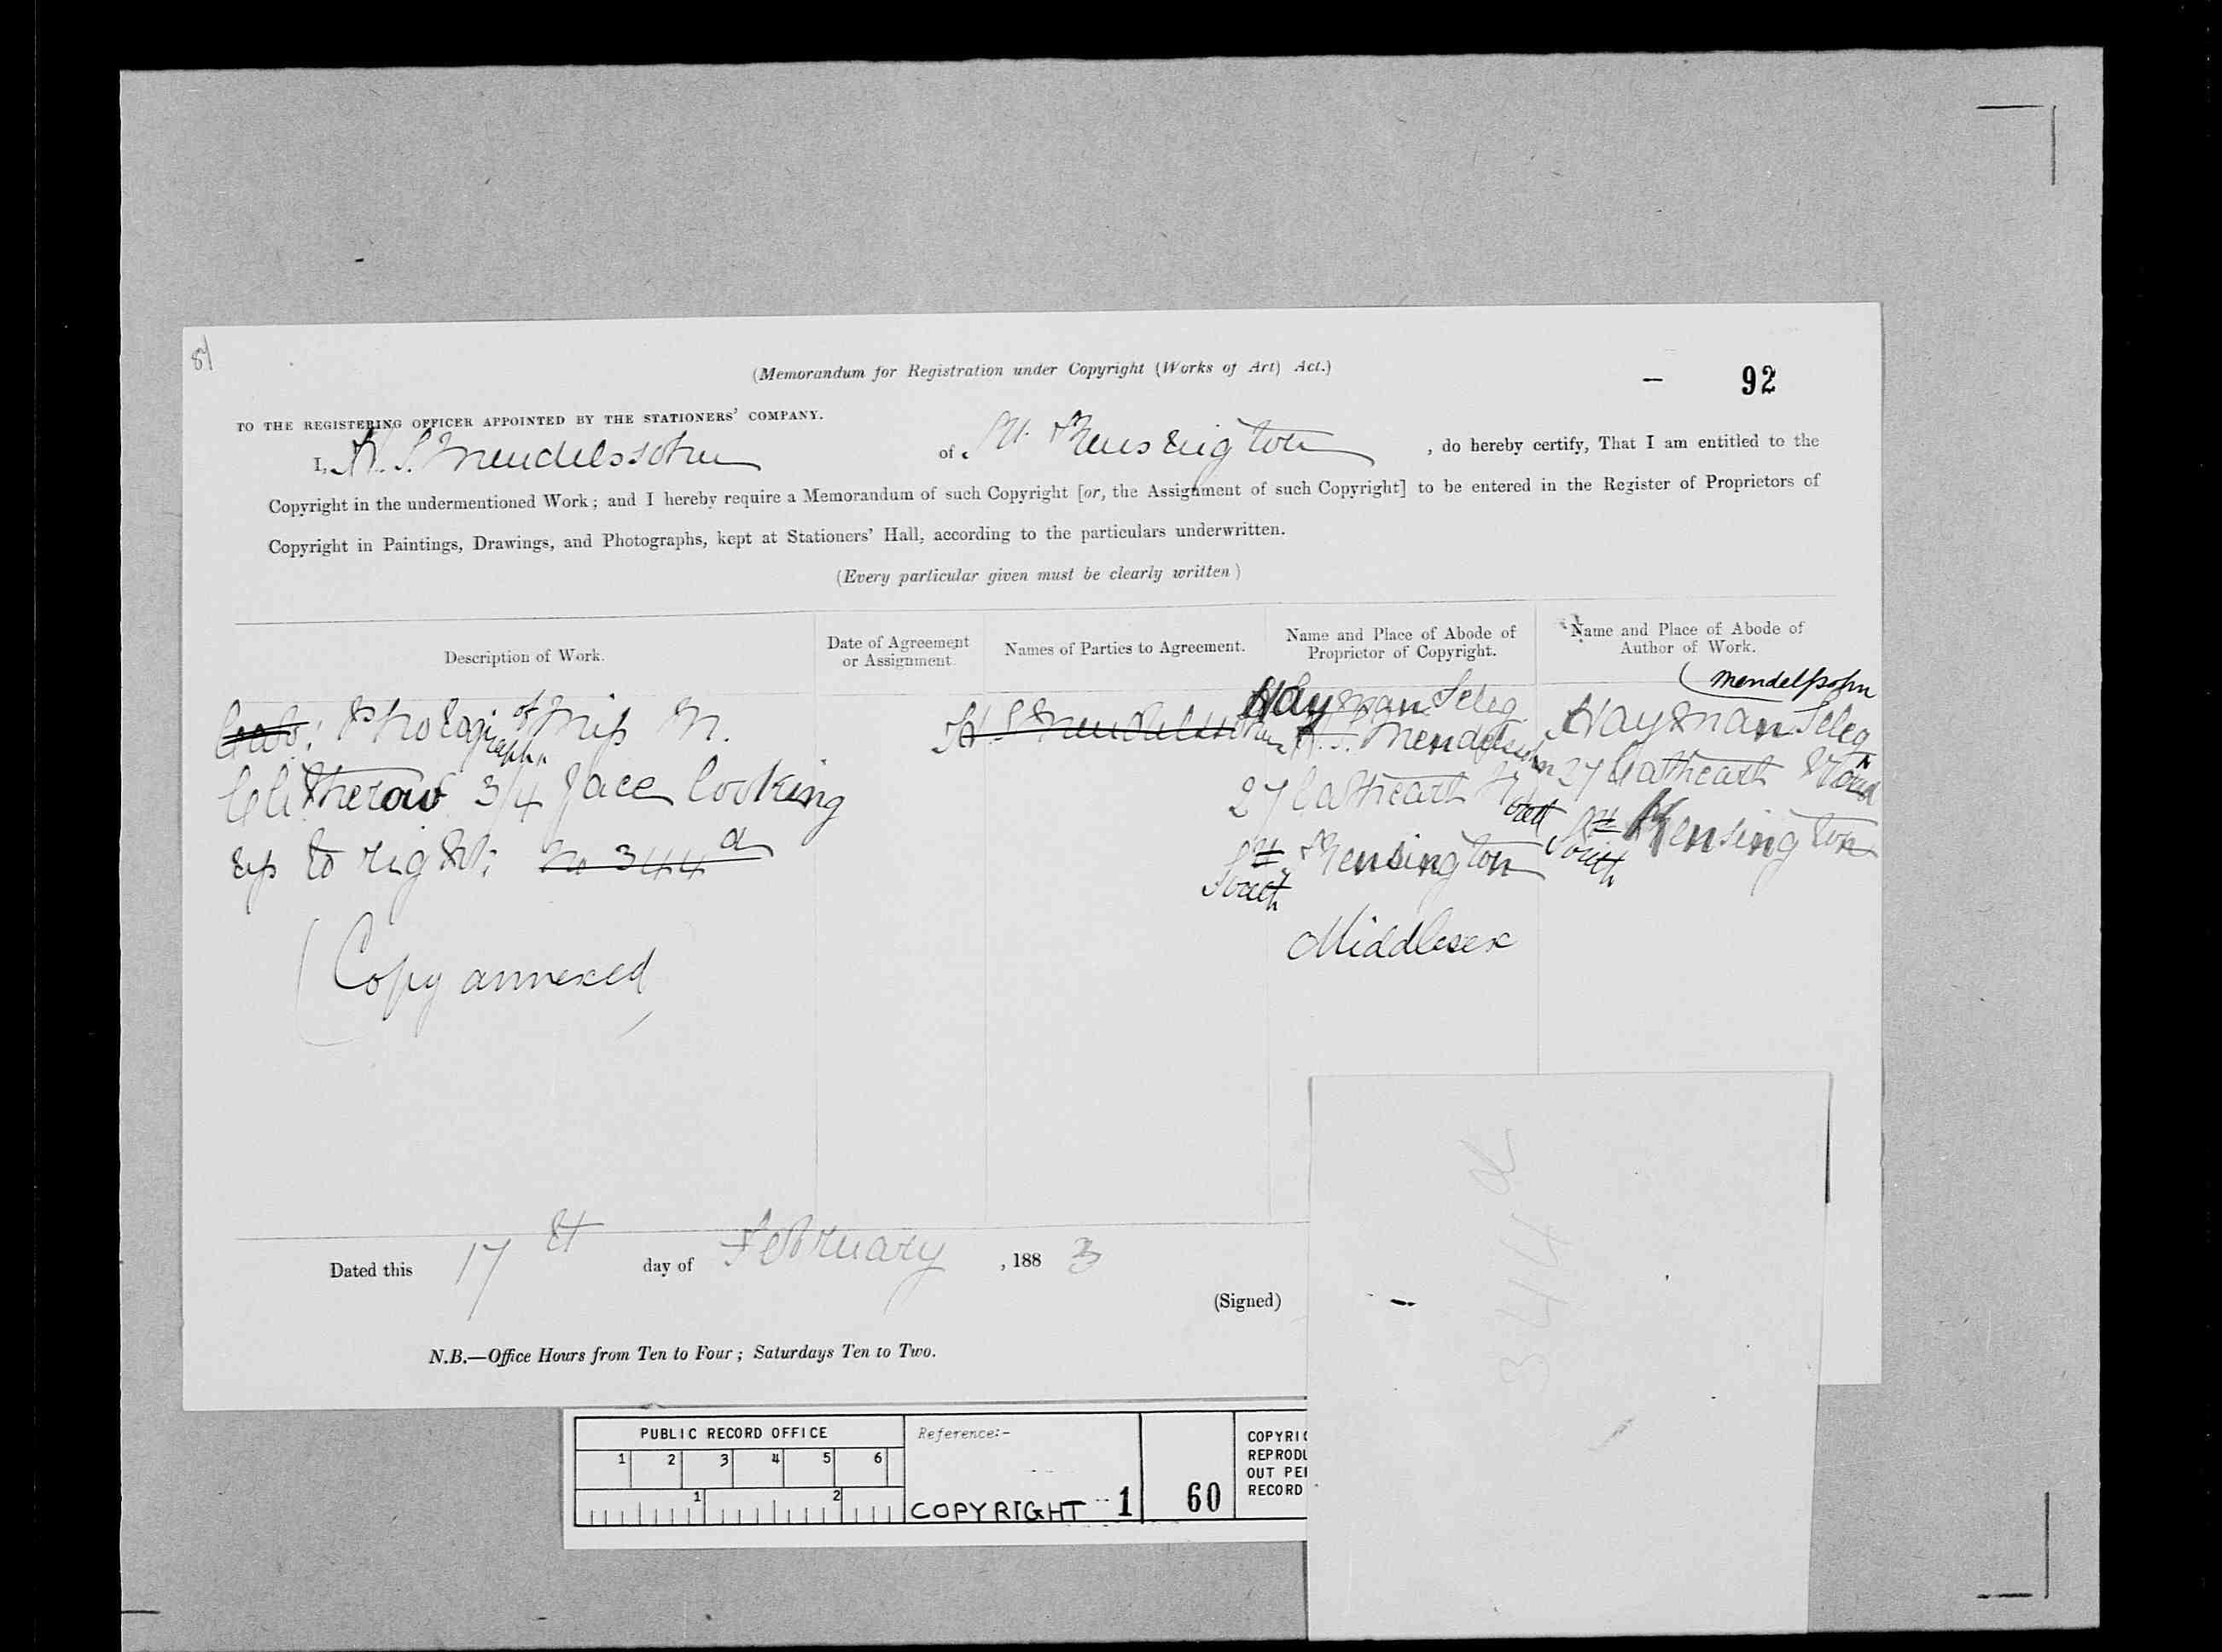 81
(Memorandum for Registration under Copyright (Works of Art) Act.)
- 92
TO THE REGISTERING OFFICER APPOINTED BY THE STATIONERS' COMPANY.
I, H. S. Mendelssohn of St. Kensington, do hereby certify, That I am entitled to the
Copyright in the undermentioned Work; and I hereby require a Memorandum of such Copyright [or, the Assignment of such Copyright] to be entered in the Register of Proprietors of
Copyright in Paintings, Drawings, and Photographs, kept at Stationers' Hall, according to the particulars underwritten.
(Every particular given must be clearly written)
Description of Work.
Date of Agreement
or Assignment.
Names of Parties to Agreement.
Name and Place of Abode of
Proprietor of Copyright.
Name and Place of Abode of
Author of Work.
Photograph of Miss M.
Clitherow 3/4 face looking
up to right: No 344 d
(Copy annexed
H. S. Mendelssohn
Hayman Seleg
H. S. Mendelssohn
27 Cathcart Road
Sth Kensington
South
Middlesex
Mendelssohn
Hayman Seleg
27 Cathcart Road
Sth Kensington
South
Dated this 17th day of February, 1883
(Signed)
N.B.—Office Hours from Ten to Four; Saturdays Ten to Two.
344 d
PUBLIC RECORD OFFICE
1 2 3 4 5 6
1 2
Reference:-
COPYRIGHT 1
60
COPYRIG
REPRODU
OUT PER
RECORD